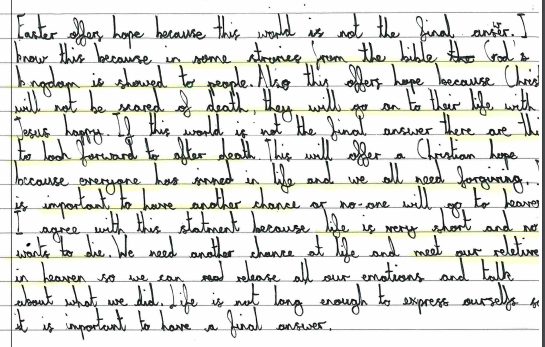 Easter offers hope because this world is not the final anser. I
know this because in some stories from the bible God's
kingdom is showed to people. Also this offers hope because Chris
will not be scared of death, they will go on to their life with
Jesus happy. If this world is not the final answer there are thi
to look forward to after death. This will offer a Christian hope
because everyone has sinned in life and we all need forgiving.
is important to have another chance or no-one will go to heaven
I agree with this statment because life is very short and no
wants to die. We need another chance at life and meet our reletive
in heaven so we can release all our emotions and talk
about what we did. Life is not long enough to express ourselfs s
it is important to have a final answer.